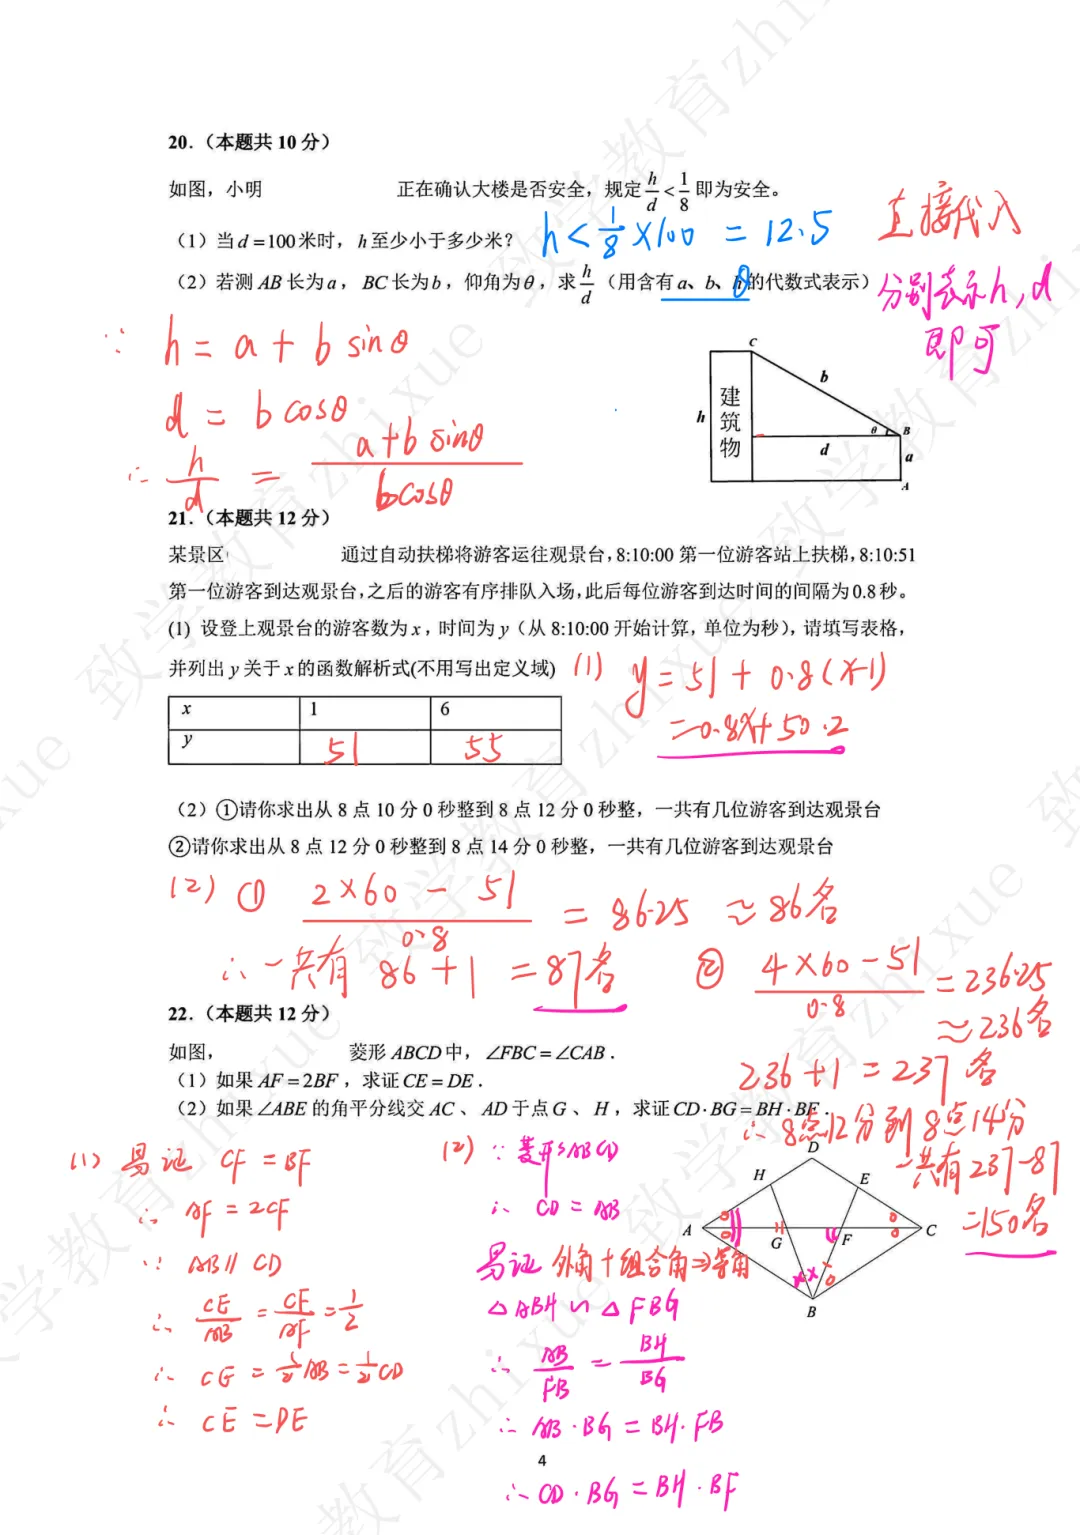 20.（本题共 10 分）
如图，小明 正在确认大楼是否安全，规定 h/d < 1/8 即为安全。
（1）当 d =100 米时，h 至少小于多少米？ h < 1/8 ×100 = 12.5 直接代入
（2）若测 AB 长为 a，BC 长为 b，仰角为 θ，求 h/d （用含有 a、b、θ 的代数式表示） 分别表示h,d
即可
∵ h = a + b sinθ
d = b cosθ
∴ h/d = (a+b sinθ)/(bcosθ)
C
b
建筑物
h
θ
B
d
a
A
21.（本题共 12 分）
某景区 通过自动扶梯将游客运往观景台，8:10:00 第一位游客站上扶梯，8:10:51
第一位游客到达观景台，之后的游客有序排队入场，此后每位游客到达时间的间隔为 0.8 秒。
(1) 设登上观景台的游客数为 x，时间为 y（从 8:10:00 开始计算，单位为秒），请填写表格，
并列出 y 关于 x 的函数解析式(不用写出定义域) (1) y = 51 + 0.8(x-1)
= 0.8x+50.2
x 1 6
y 51 55
（2）①请你求出从 8 点 10 分 0 秒整到 8 点 12 分 0 秒整，一共有几位游客到达观景台
②请你求出从 8 点 12 分 0 秒整到 8 点 14 分 0 秒整，一共有几位游客到达观景台
(2) ① (2×60 - 51)/0.8 = 86.25 ≈ 86名
∴ 一共有 86 + 1 = 87名
② (4×60-51)/0.8 = 236.25
≈ 236名
236+1 = 237 名
∴ 8点12分到8点14分
一共有 237-87
=150名
22.（本题共 12 分）
如图， 菱形 ABCD 中，∠FBC = ∠CAB .
（1）如果 AF = 2BF，求证 CE = DE .
（2）如果 ∠ABE 的角平分线交 AC 、 AD 于点 G 、 H ，求证 CD·BG = BH·BF .
(1) 易证 CF = BF
∴ AF = 2CF
∵ AB∥CD
∴ CE/AB = CF/AF = 1/2
∴ CE = 1/2 AB = 1/2 CD
∴ CE = DE
(2) ∵ 菱形ABCD
∴ CD = AB
易证 外角+组合角⇒等角
△ABH ∽ △FBG
∴ AB/FB = BH/BG
∴ AB·BG = BH·FB
∴ CD·BG = BH·BF
D
H
E
A
G
F
C
B
4
致学教育zhixue